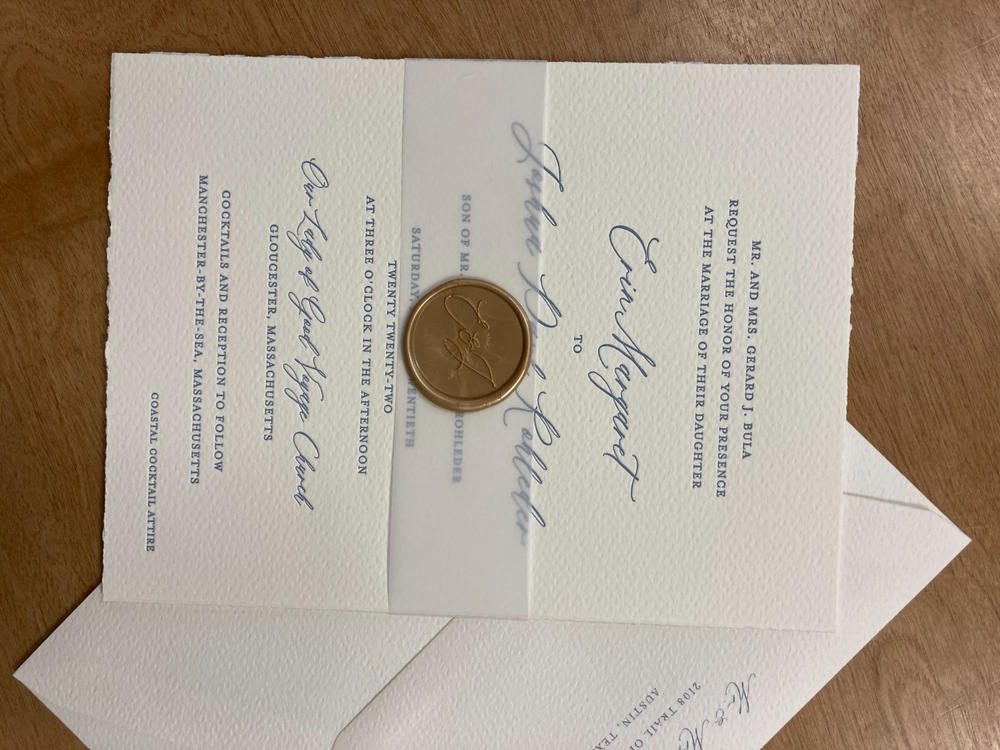 MR. AND MRS. GERARD J. BULA
REQUEST THE HONOR OF YOUR PRESENCE
AT THE MARRIAGE OF THEIR DAUGHTER
Erin Margaret
TO
Rohleder
SON OF MR. ROHLEDER
SATURDAY,
TWENTY TWENTY-TWO
AT THREE O'CLOCK IN THE AFTERNOON
Our Lady of Good Voyage Church
GLOUCESTER, MASSACHUSETTS
COCKTAILS AND RECEPTION TO FOLLOW
MANCHESTER-BY-THE-SEA, MASSACHUSETTS
COASTAL COCKTAIL ATTIRE
Mr. &
2108 TRAIL
AUSTIN,